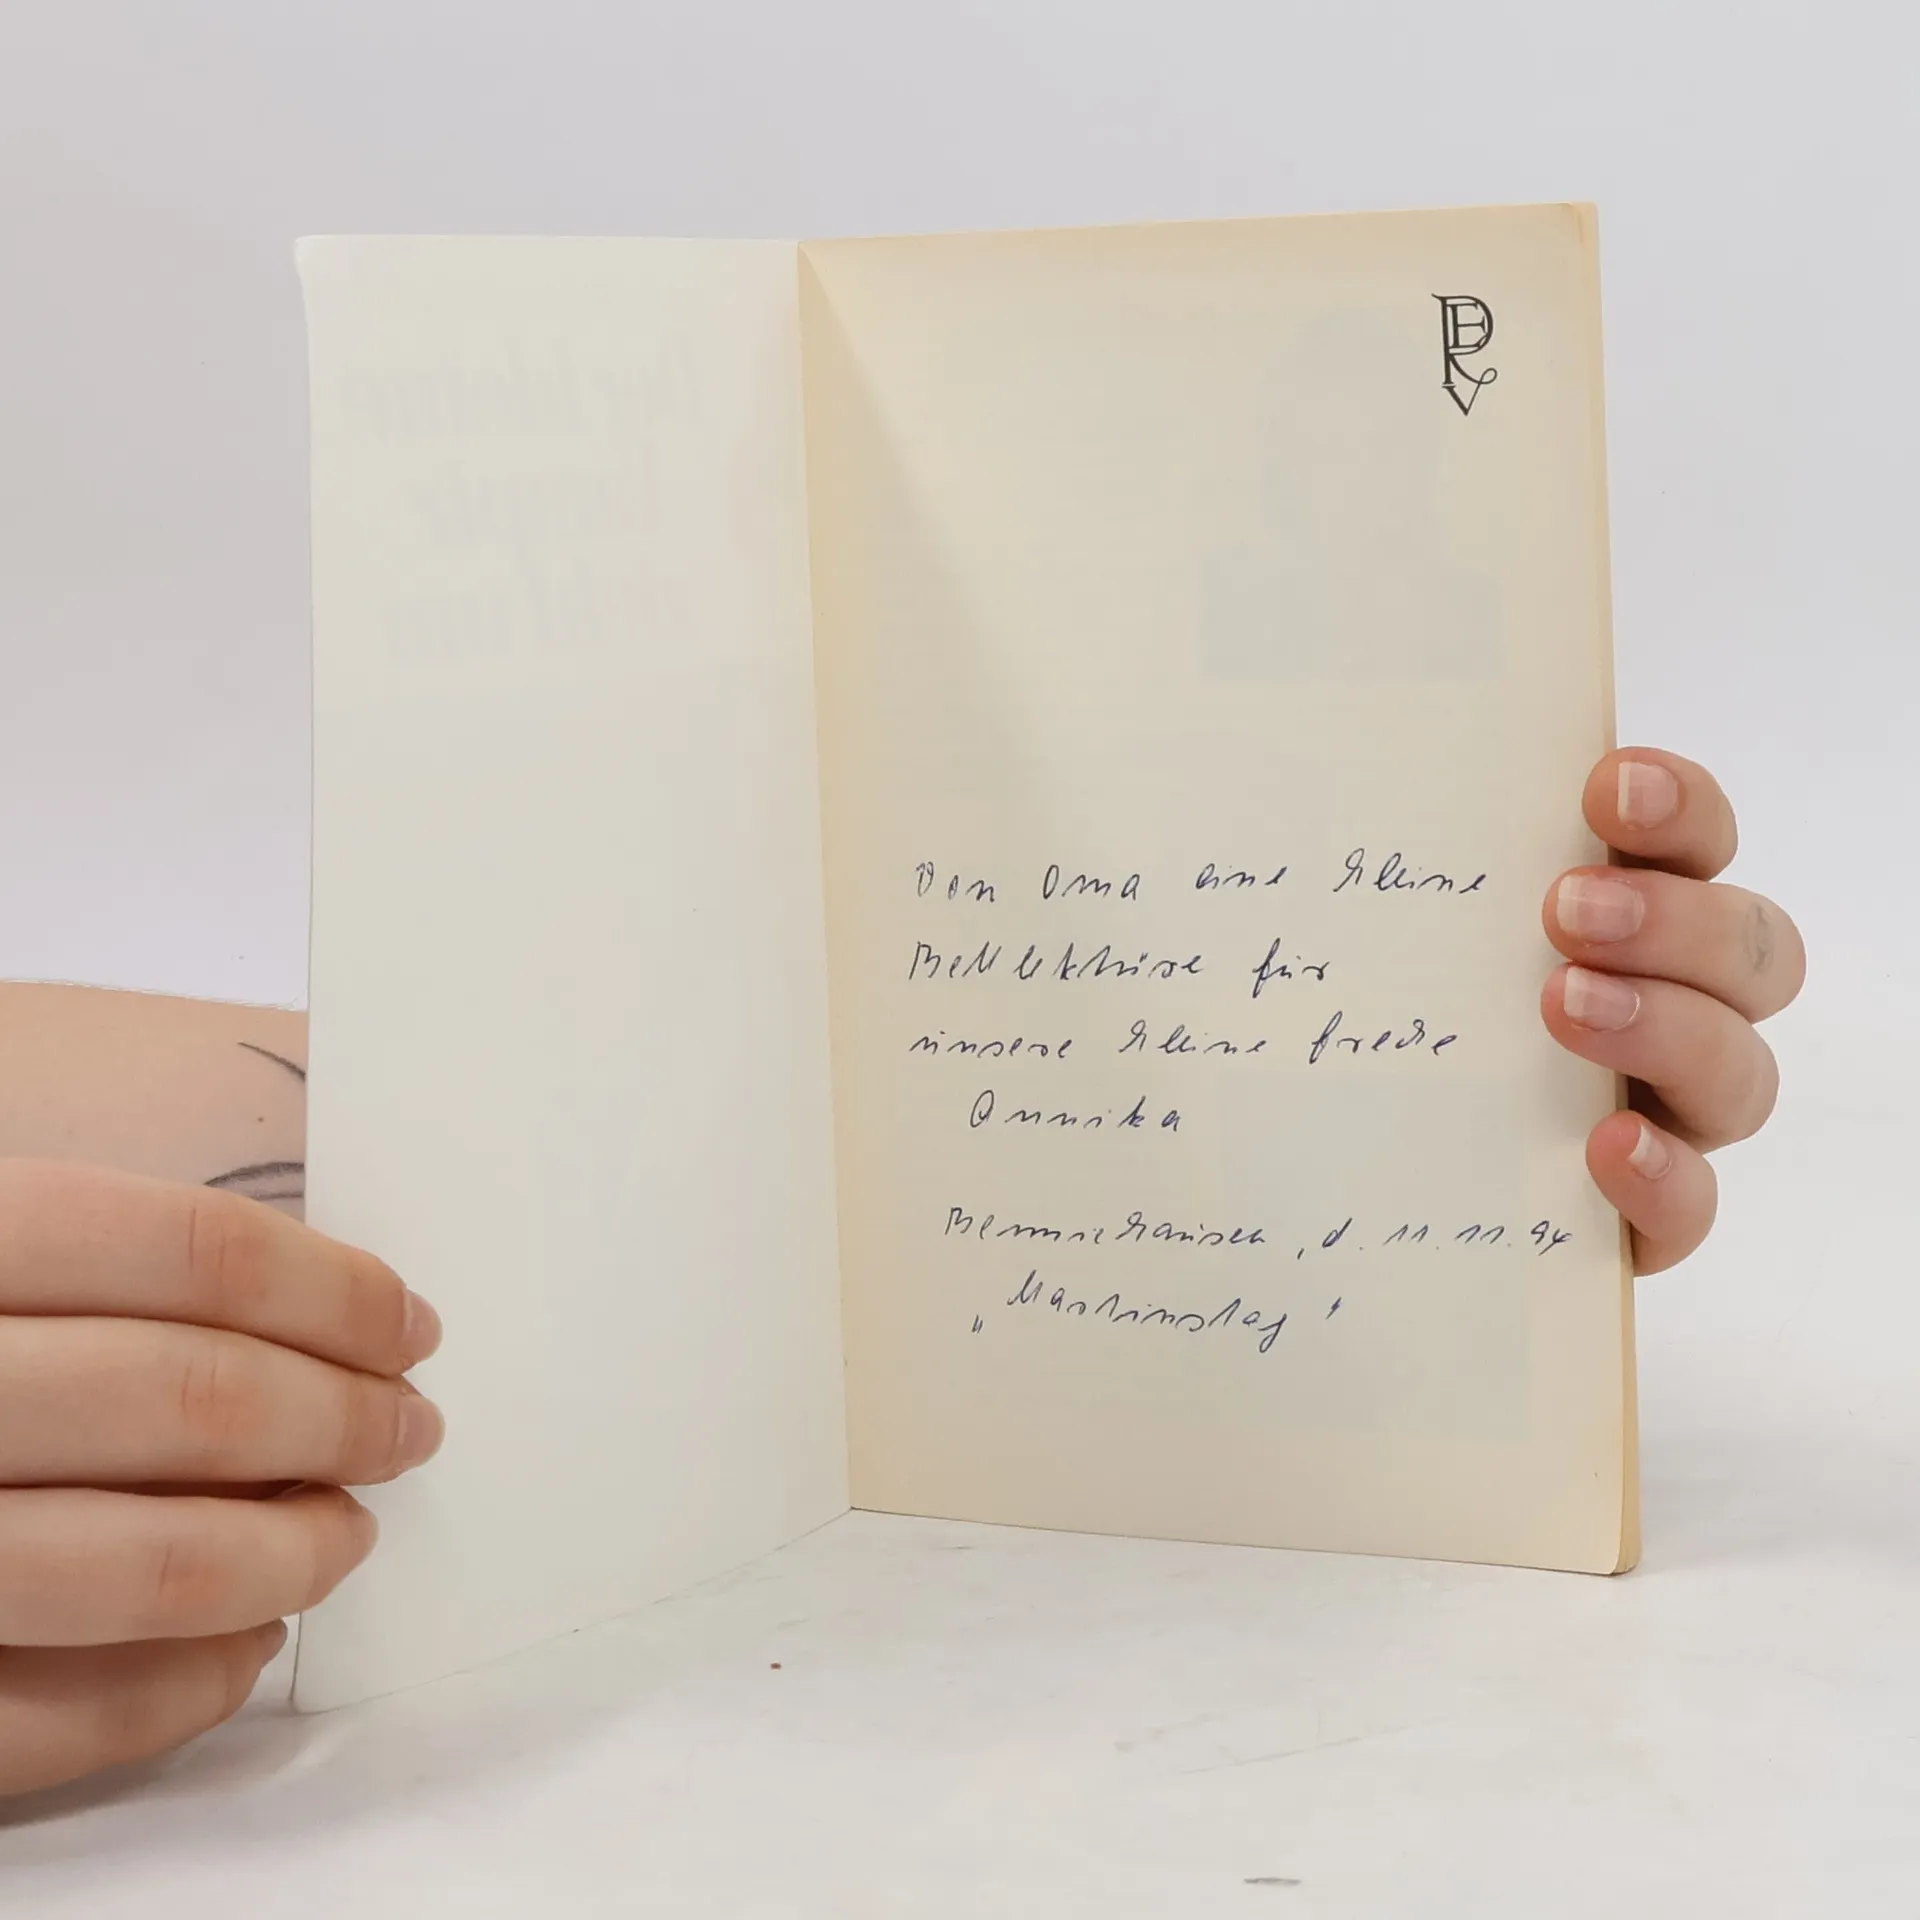 PEV
Von Oma eine kleine
Bettlektüre für
unsere kleine freche
Annika
Benniehausen, d. 11.11.94
„Martinstag"